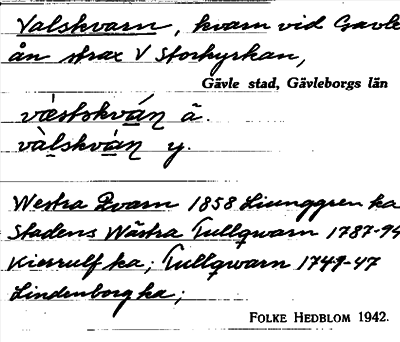 Valskvarn, kvarn vid Gävle
ån strax V Storkyrkan,
Gävle stad, Gävleborgs län
væ̀stskván ä.
vàlskván y.
Westra Qvarn 1858 Ljunggren ka
Stadens Wästra Tullqwarn 1787-94
Kierrulf ka; Tullqwarn 1749-47
Lindenborg ka;
FOLKE HEDBLOM 1942.